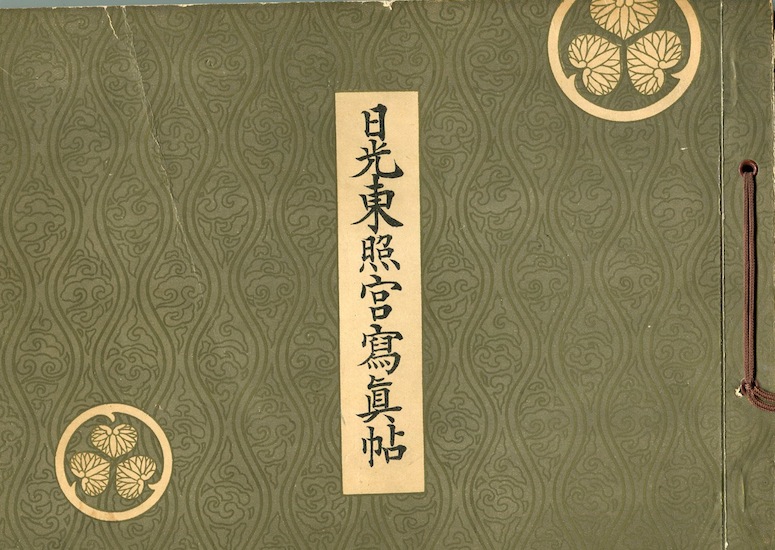 日光東照宮寫眞帖